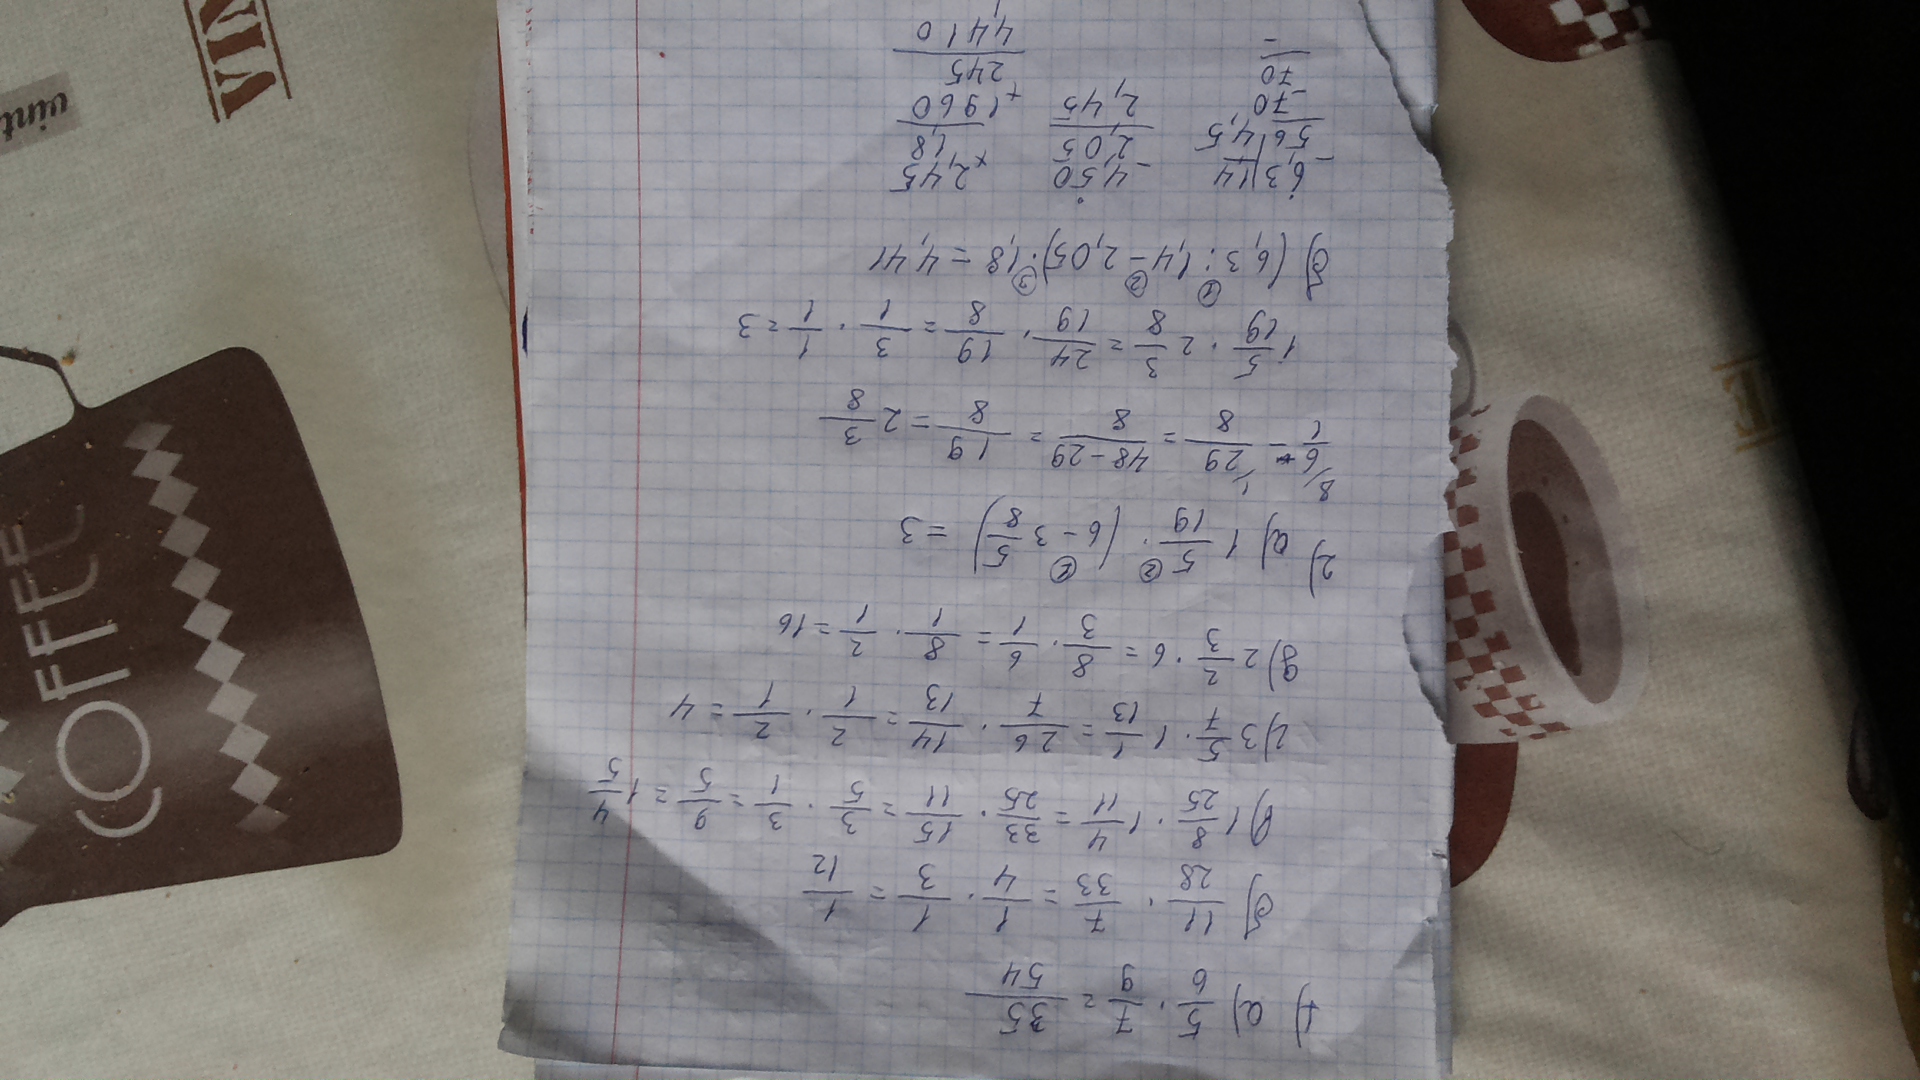 1) а) 5/6 · 7/9 = 35/54
б) 11/28 · 7/33 = 1/4 · 1/3 = 1/12
в) 1 8/25 · 1 4/11 = 33/25 · 15/11 = 3/5 · 3/1 = 9/5 = 1 4/5
г) 3 5/7 · 1 1/13 = 26/7 · 14/13 = 2/1 · 2/1 = 4
д) 2 2/3 · 6 = 8/3 · 6/1 = 8/1 · 2/1 = 16
2) а) 1 5/19 ·② (6 -① 3 5/8) = 3
8/ 6/1 - 1/ 29/8 = 48-29/8 = 19/8 = 2 3/8
1 5/19 · 2 3/8 = 24/19 · 19/8 = 3/1 · 1/1 = 3
б) (6,3 :① 1,4 -② 2,05) ·③ 1,8 = 4,41
6,3 | 1,4
-56 | 4,5
70
-70
-
-4,50
2,05
2,45
×2,45
1,8
+1960
245
4,410
COFFEE
VIN
vint